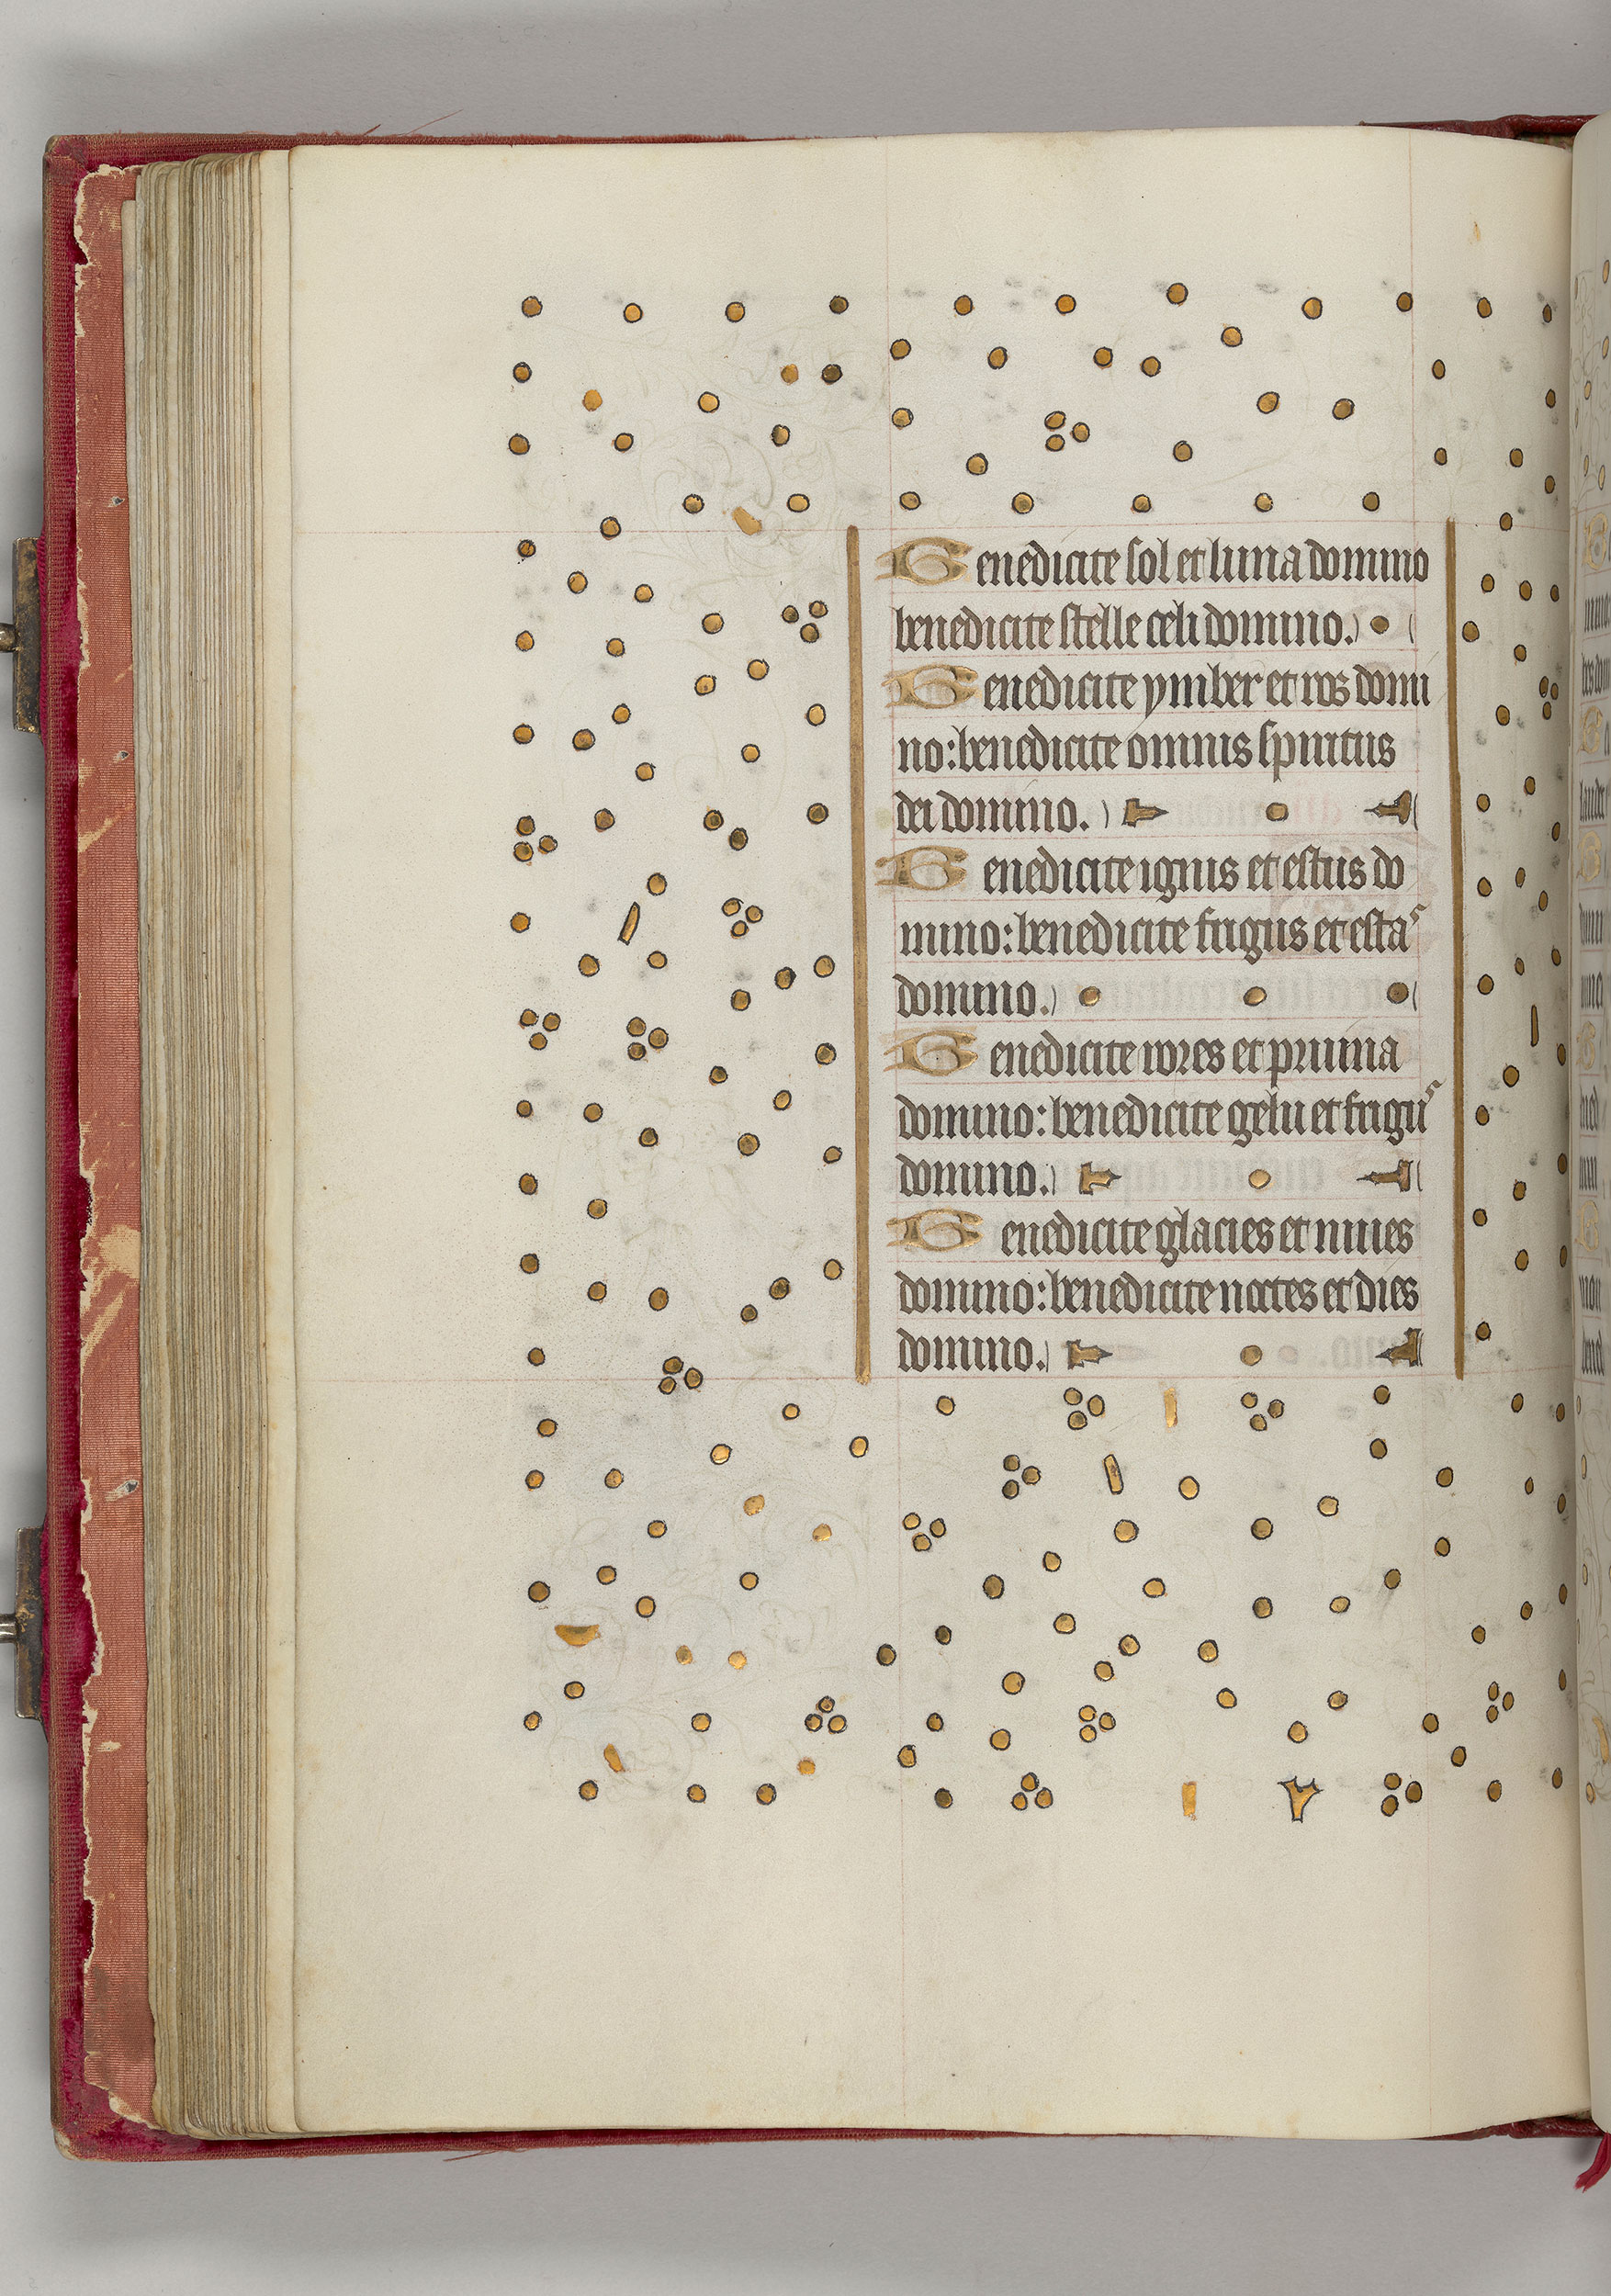 Benedicite sol et luna domino
benedicite stelle celi domino.
Benedicite ymber et ros domi
no: benedicite omnis spiritus
dei domino.
Benedicite ignis et estus do
mino: benedicite frigus et estas
domino.
Benedicite rores et pruina
domino: benedicite gelu et frigus
domino.
Benedicite glacies et niues
domino: benedicite noctes et dies
domino.